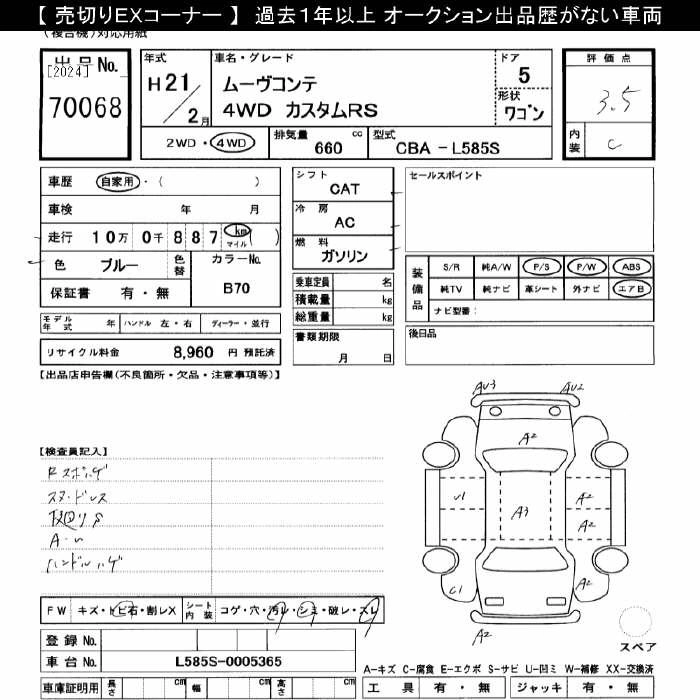 【 売切りEXコーナー 】 過去1年以上 オークション出品歴がない車両
(複合機)対応用紙
出品No.
[2024]
70068
年式
H 21/2月
車名・グレード
ムーヴコンテ
4WD カスタムRS
ドア
5
形状
ワゴン
評価点
3.5
内装
C
2WD・4WD
排気量 660 cc
型式 CBA - L585S
車歴 自家用・( )
車検 年 月
走行 10万 0千 8 8 7 km マイル ( )
色 ブルー 色替
カラーNo.
B70
保証書 有・無
シフト
CAT
冷房
AC
燃料
ガソリン
乗車定員 名
積載量 kg
総重量 kg
セールスポイント
装備品
S/R 純A/W P/S P/W ABS
純TV 純ナビ 革シート 外ナビ エアB
ナビ型番:
モデル年式 年 ハンドル 左・右 ディーラー・並行
リサイクル料金 8,960 円 預託済
書類期限
月 日
後日品
【出品店申告欄(不良箇所・欠品・注意事項等)】
AU3 AU2
A2
【検査員記入】
スタッドレス
ハンドルハゲ
U1 A3 A2
A2
C1 A2
A2
FW キズ・トビ石・割レX シート内装 コゲ・穴・汚レ・シミ・破レ・スレ
登録No.
車台No. L585S-0005365
スペア
A-キズ C-腐食 E-エクボ S-サビ U-凹ミ W-補修 XX-交換済
車庫証明用 長さ cm 幅 cm 高さ cm
工具 有・無 ジャッキ 有・無